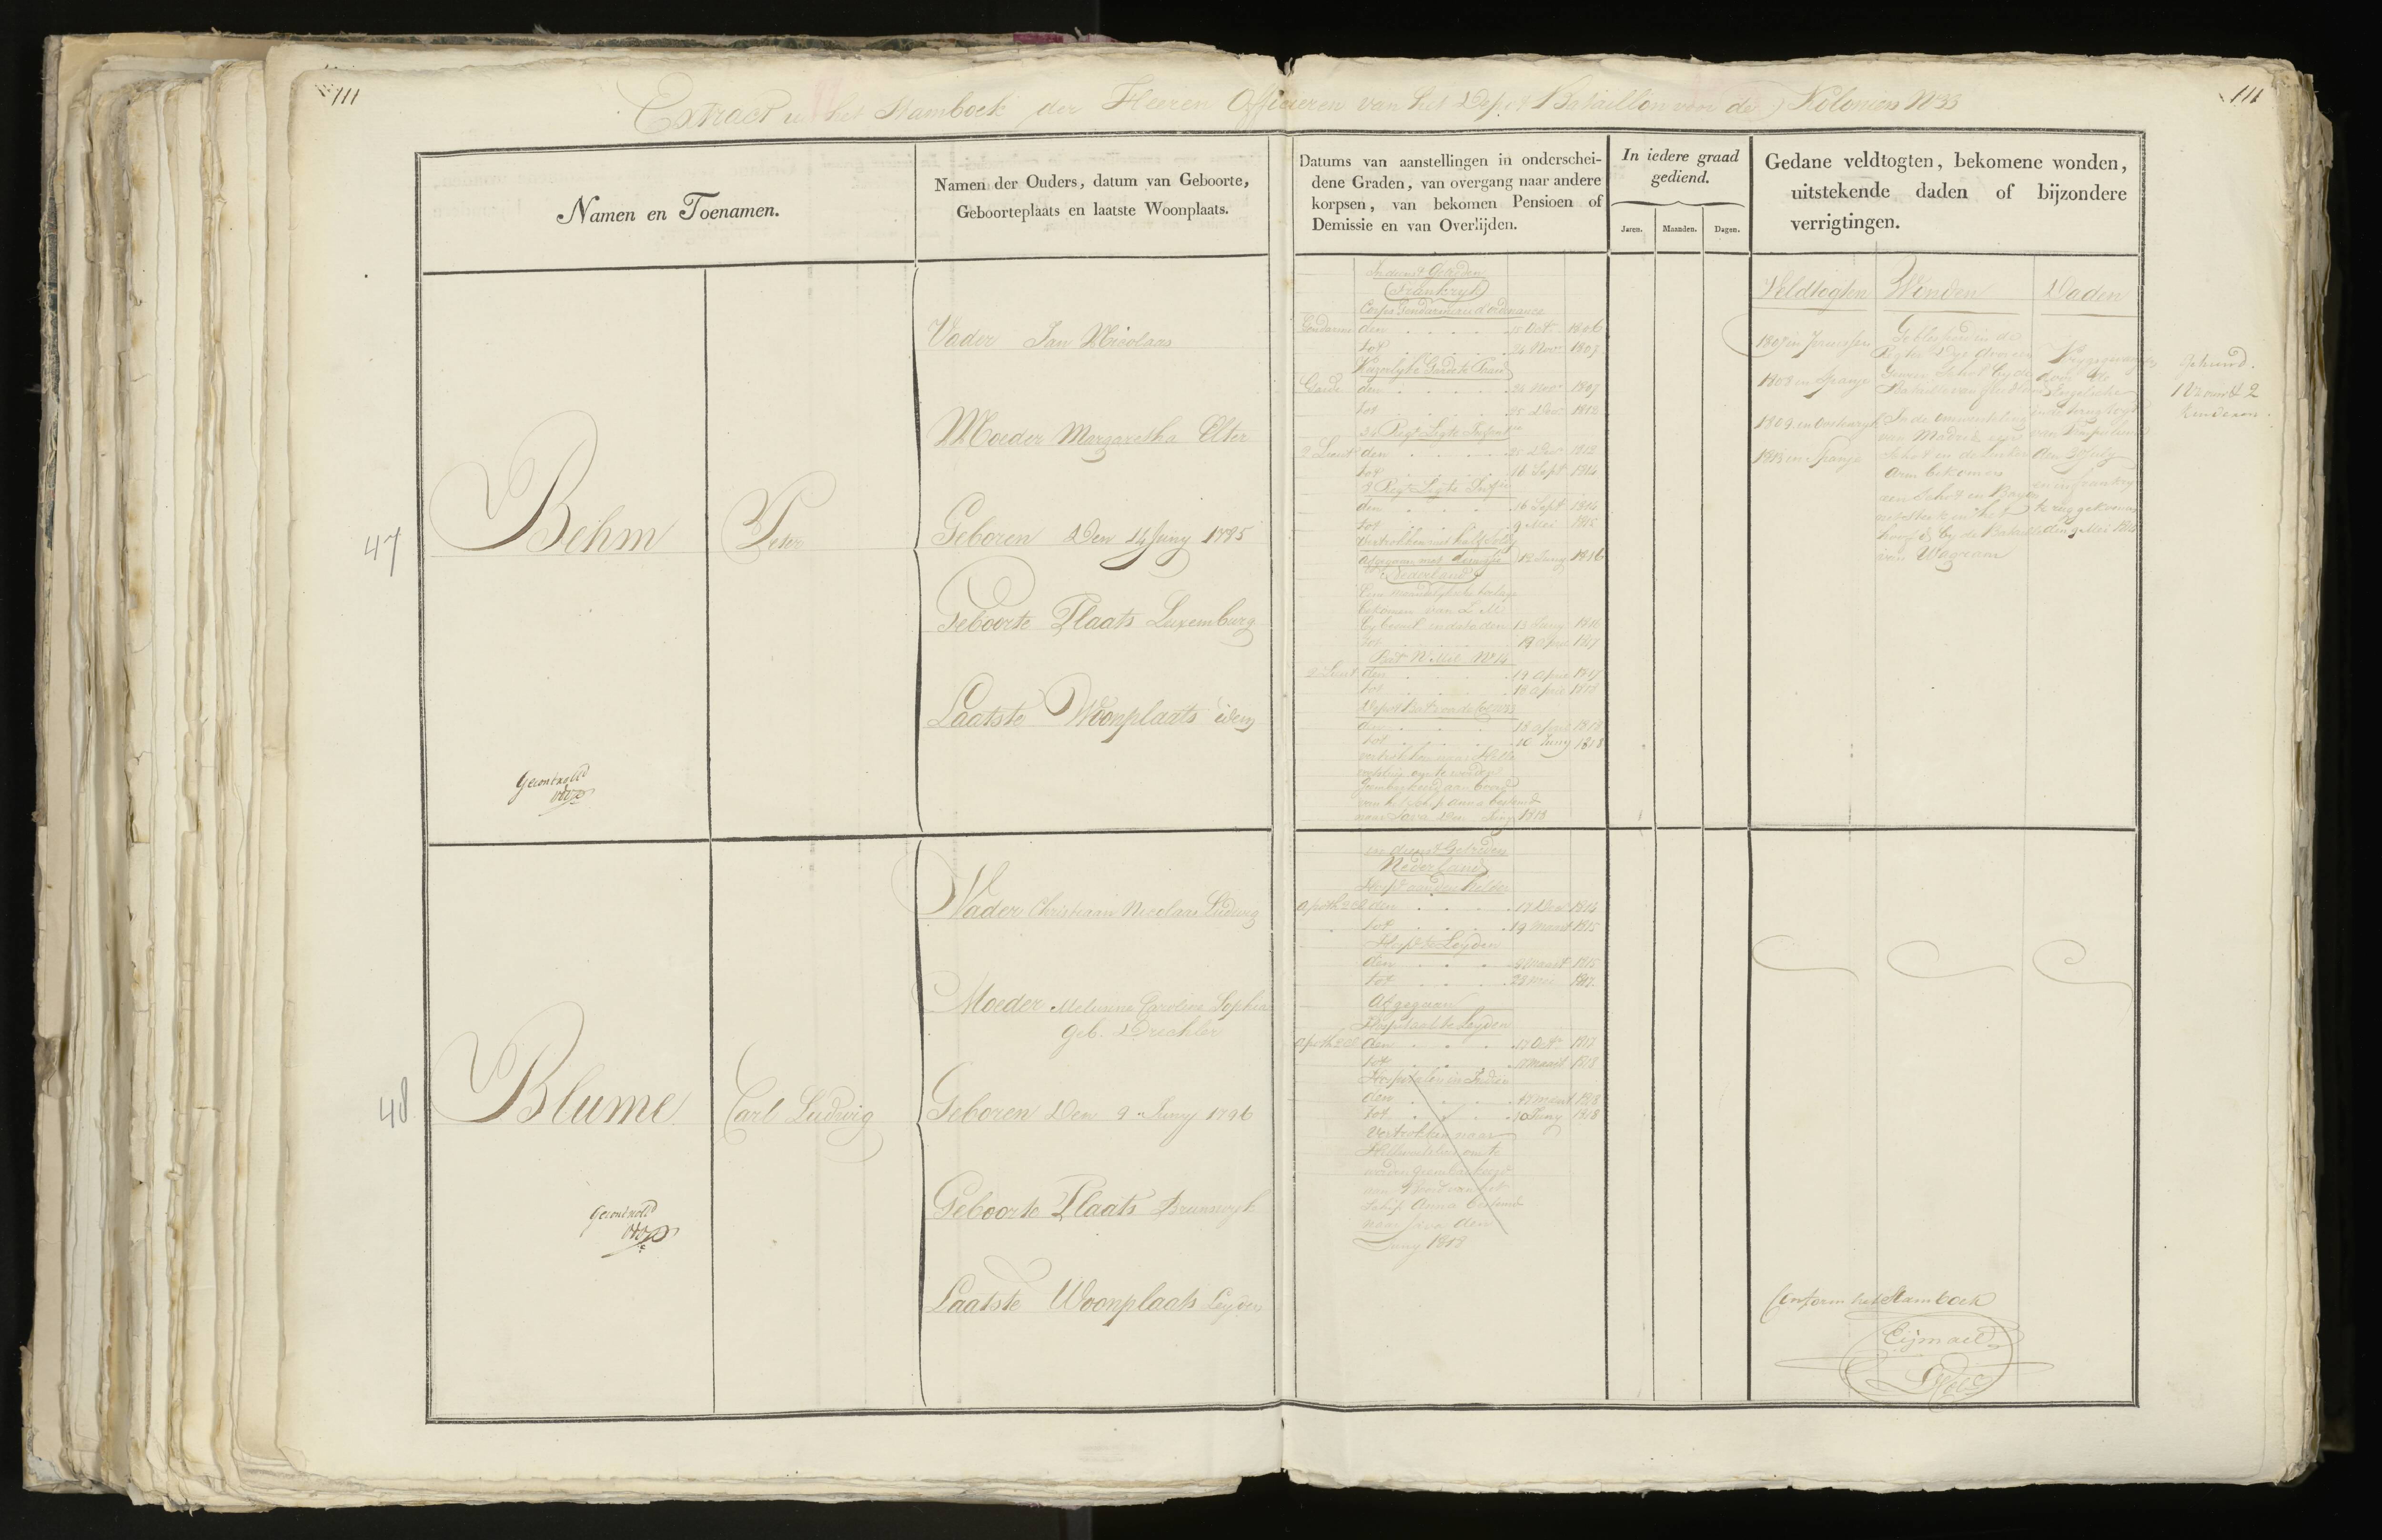 111
111
Extract uit het Stamboek der Heeren Officieren van het Depot Bataillon voor de Kolonien N 33
Namen en Toenamen.
Namen der Ouders, datum van Geboorte,
Geboorteplaats en laatste Woonplaats.
Datums van aanstellingen in onderschei-
dene Graden, van overgang naar andere
korpsen, van bekomen Pensioen of
Demissie en van Overlijden.
In iedere graad
gediend.
Jaren. Maanden. Dagen.
Gedane veldtogten, bekomene wonden,
uitstekende daden of bijzondere
verrigtingen.
47
Behm
Peter
Gecontrolld
Vader Jan Nicolaas
Moeder Margaretha Elter
Geboren Den 14 Juny 1785
Geboorte Plaats Luxemburg
Laatste Woonplaats idem
In dienst Getreden
Frankryk
Corps Gendarmerie d'ordonnance
Gendarme den 15 Oct 1806
tot 24 Nov 1807
Keizerlyke Garde te Paard
Garde den 24 Nov 1807
tot 25 Dec 1812
34 Regt Ligte Infant
2 Lieut den 25 Dec 1812
tot 16 Sept 1814
9 Regt Ligte Infie
den 16 Sept 1814
tot 9 Mei 1815
Vertrokken met half Soldy
Afgegaan met demissie 12 Juny 1816
Nederland
Een maandelyksche toelage
bekomen van Z. M.
13 Juny 1816
tot 19 April 1817
Bat N Mil No 14
2 Lieut den 19 April 1817
tot 18 April 1818
Depot Bat voor de Kol N 33
den 18 April 1818
tot 10 Juny 1818
vertrokken naar Helle
voetsluis om te worden
Geembarkeerd aan boord
van het Schip Anna bestemd
naar Java den Juny 1818
Veldtogten Wonden Daden
1807 in Pruissen
1808 in Spanje
1809 in Oostenryk
1813 in Spanje
Geblesseerd in de
Regter Dye door een
Geweer Schot by de
Bataille van
In de omwenteling
van Madrid een
Schot in de linker
Arm bekomen
een Schot en Bayo
netsteek in het
hoofd by de Bataille
van Wagram
Krygsgevangen
door de
Engelsche
in de terug togt
van Pampeluna
den 2 July
en in Frankryk
terug gekomen
den 9 Mei 1814
Gehuwd.
Vrouw & 2
kinderen.
48
Blume
Carl Ludwig
Gecontrolld
Vader Christiaan Nicolaas Ludwig
Moeder Melusina Caroline Sophia
Geb. Drechsler
Geboren Den 9n Juny 1796
Geboorte Plaats Brunswyk
Laatste Woonplaats Leyden
in dienst Getreden
Nederland
Hospt aan den Helder
apoth 3e Cl den 17 Dec 1814
tot 19 Maart 1815
Hospt te Leyden
den 19 Maart 1815
tot 23 Mei 1817
Afgegaan
Hospitaal te Leyden
apoth 2e Cl den 17 Oct 1817
tot 17 Maart 1818
Hospitalen in Indie
den 17 Maart 1818
tot 10 Juny 1818
Vertrokken naar
Hellevoetsluis om te
worden Geembarkeerd
aan Boord van het
Schip Anna bestemd
naar Java den
Juny 1818
Conform het Stamboek